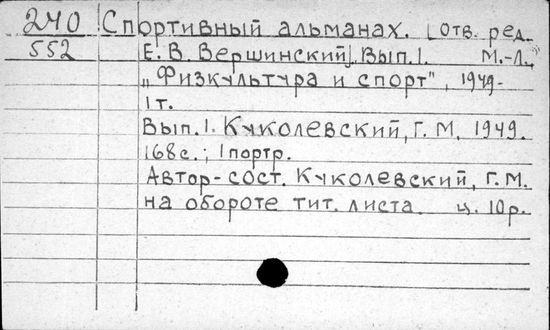 240 Спортивный альманах. [отв. ред.
552 Е. В. Вершинский]. Вып. 1. М.-Л.,
„Физкультура и спорт", 1949-
1 т.
Вып. 1. Куколевский, Г. М. 1949.
168 с.; 1 портр.
Автор-сост. Куколевский, Г. М.
на обороте тит. листа. ц. 10 р.